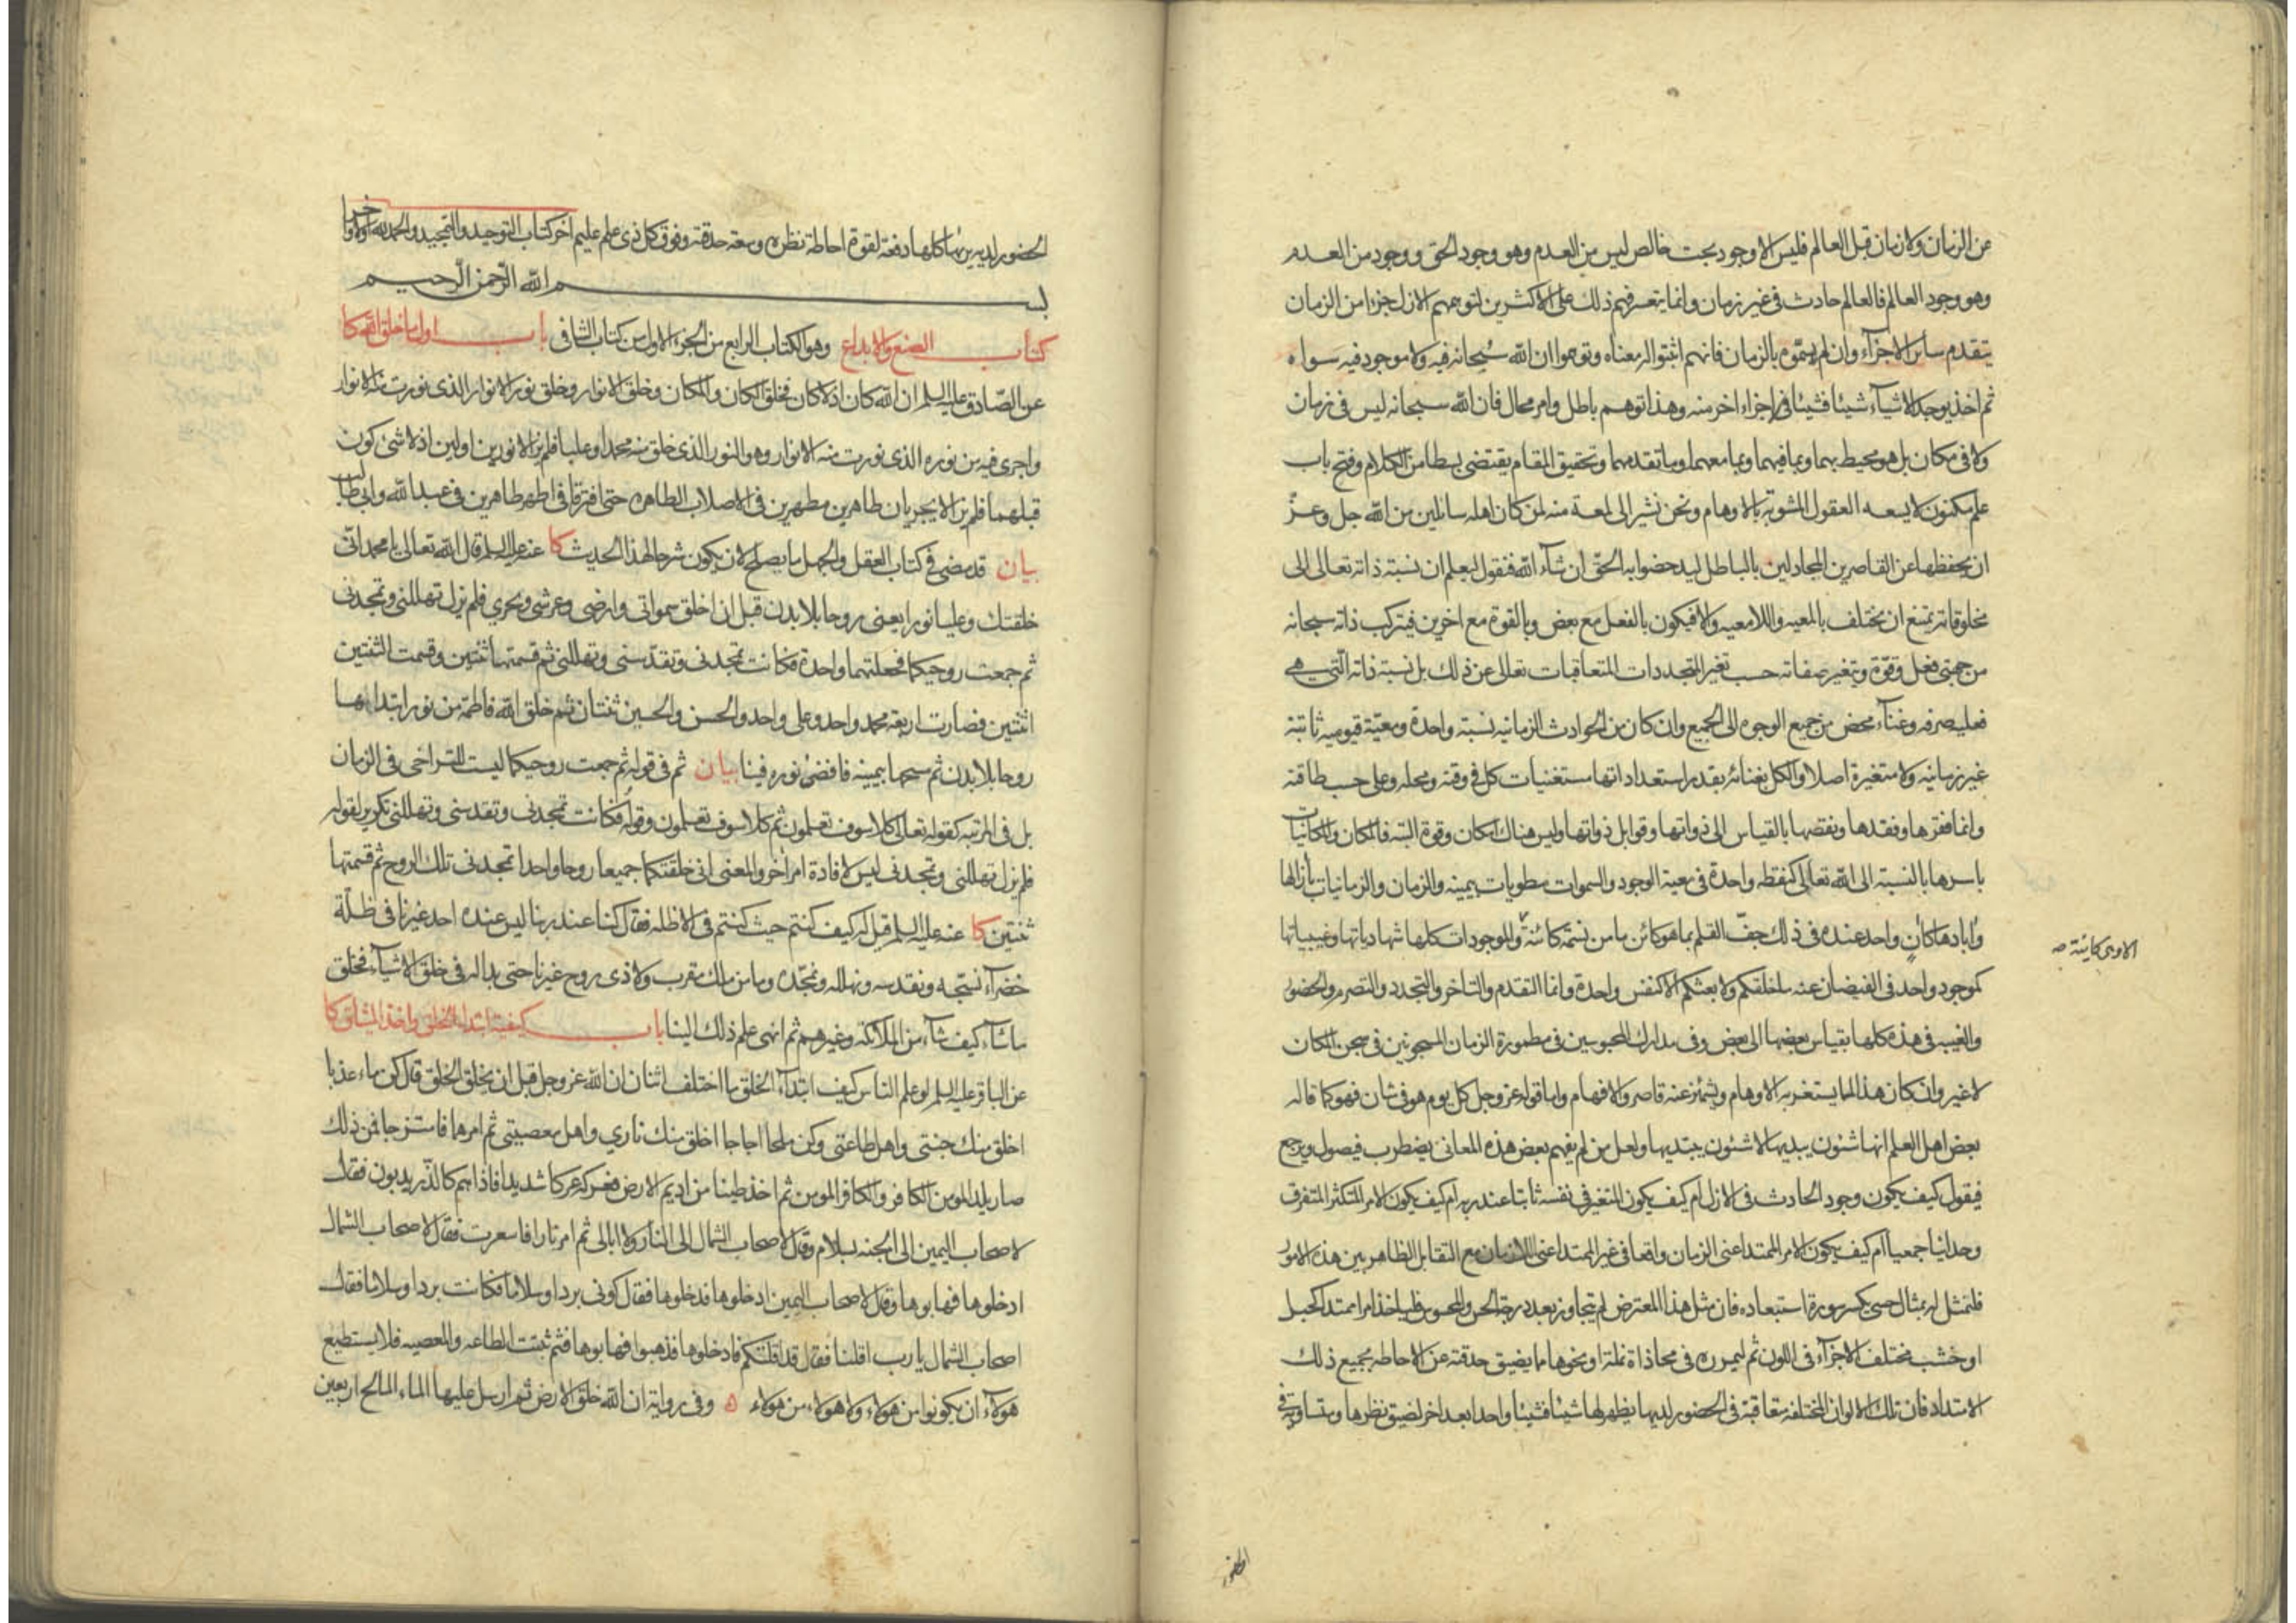 عن الزمان ولا زمان قبل العالم فليس الا وجود بحت خالص ليس من العدم وهو وجود الحق ووجود من العدم
وهو وجود العالم فالعالم حادث في غير زمان وانما يتعسر فهم ذلك على الاكثرين لتوهمهم الازل جزءا من الزمان
يتقدم سائر الاجزآء وان لم يسمّوه بالزمان فانهم اثبتوا له معناه وتوهموا ان الله سُبحانه فيه ولا موجود فيه سواه
ثم اخذ يوجد الاشيآء شيئا فشيئا في اجزاء اخر منه وهذا توهم باطل وامر محال فان الله سبحانه ليس في زمان
ولا في مكان بل هو محيط بهما وبما فيهما وبما معهما وما تقدمهما وتحقيق المقام يقتضي بسطا من الكلام وفتح باب
علم مكنون لا يسعه العقول المشوبة بالاوهام ونحن نشير الى لمعة منه لمن كان اهله سائلين من الله جل وعزّ
ان يحفظها عن القاصرين المجادلين بالباطل ليدحضوا به الحقّ ان شآء الله فنقول ليعلم ان نسبة ذاته تعالى الى
مخلوقاته يمتنع ان يختلف بالمعيه واللامعيه والا فيكون بالفعل مع بعض وبالقوة مع اخرين فيتركب ذاته سبحانه
من جهتي فعل وقوّة ويتغير صفاته حسب تغير المتجددات المتعاقبات تعالى عن ذلك بل نسبة ذاته الّتي هي
فعليه صرفه وغنآء محض من جميع الوجوه الى الجميع وان كان من الحوادث الزمانيه نسبة واحدة ومعيّة قيوميه ثابتة
غير زمانيه ولا متغيرة اصلا والكل بغنائه بقدر استعداداتها مستغنيات كل في وقته ومحله وعلى حسب طاقته
وانما فقرها وفقدها ونقصها بالقياس الى ذواتها وقوابل ذواتها وليس هناك امكان وقوة البتّه فالمكان والمكانيات
باسرها بالنسبة الى الله تعالى كنقطه واحدة في معية الوجود والسموات مطويات بيمينه والزمان والزمانيات بآزالها
وآبادها كآن واحد عنده في ذلك جفّ القلم بما هو كائن ما من نسمة كائنة والموجودات كلها شهادياتها وغيبياتها
الاوهى كاينة صه
كموجود واحد في الفيضان عنه ما خلقكم ولا بعثكم الا كنفس واحدة وانما التقدم والتاخر والتجدد والتصرم والحضور
والغيبه في هذه كلها بقياس بعضها الى بعض وفي مدارك المحبوسين في مطمورة الزمان المسجونين في سجن المكان
لا غير وان كان هذا لمما يستغربه الاوهام ويشمئز عنه قاصر والافهام واما قوله عز وجل كل يوم هو في شان فهو كما قاله
بعض اهل العلم انها شئون يبديها لا شئون يبتديها ولعل من لم يفهم بعض هذه المعانى يضطرب فيصول ويرجع
فيقول كيف يكون وجود الحادث في الازل ام كيف يكون المتغير في نفسه ثابتا عند ربه ام كيف يكون الامر المتكثر المتفرق
وحدانيا جمعيا ام كيف يكون الامر الممتد اعني الزمان واقعا في غير الممتد اعني اللازمان مع التقابل الظاهر بين هذه الامور
فلنمثل له بمثال حسي يكسر سورة استبعاده فان مثل هذا المعترض لم يتجاوز بعد درجة الحس والمحسوس فلياخذ امرا ممتدا كحبل
او خشب مختلف الاجزآء في اللون ثم ليمرره في محاذاة نملة او نحوها مما يضيق حدقته عن الاحاطه بجميع ذلك
الامتداد فان تلك الالوان المختلفه متعاقبة في الحضور لديها يظهر لها شيئا فشيئا واحدا بعد اخر لضيق نظرها ومتساوية في
الحضور لديه يرىها كلها دفعة لقوة احاطة نظره وسعة حدقته وفوق كل ذي علم عليم اخر كتاب التوحيد والتمجيد والحمد لله اولا واخرا
بسم الله الرّحمن الرّحيم
كتاب الصنع والابداع وهو الكتاب الرابع من الجزء الاول من كتاب الشافى باب اول ما خلق الله كا
عن الصّادق عليه السلم ان الله كان اذ لا كان فخلق الكان والمكان وخلق الانوار وخلق نور الانوار الذى نورت منه الانوار
واجرى فيه من نوره الذى نورت منه الانوار وهو النور الذى خلق منه محمدا وعليا فلم يزالا نورين اولين اذ لا شئ كون
قبلهما فلم يزالا يجريان طاهرين مطهرين في الاصلاب الطاهره حتى افترقا في اطهر طاهرين في عبد الله وابى طالب
بيان قد مضى في كتاب العقل والجهل ما يصلح لان يكون شرحا لهذا الحديث كا عنه عليه السلم قال الله تعالى يا محمد انّى
خلقتك وعليا نورا يعنى روحا بلا بدن قبل ان اخلق سمواتى وارضى وعرشى وبحري فلم يزل تهللنى وتمجدنى
ثم جمعت روحيكما فجعلتهما واحدة فكانت تمجدنى وتقدّسنى وتهللنى ثم قسمتها ثنتين وقسمت الثنتين
اثنتين فصارت اربعة محمد واحد وعلى واحد والحسن والحسين ثنتان ثم خلق الله فاطمة من نور ابتداءها
روحا بلا بدن ثم مسحها بيمينه فافضىٰ نوره فينا بيان ثم في قوله ثم جمعت روحيكما ليست للتراخى في الزمان
بل في المرتبه كقوله تعالى كلا سوف تعلمون ثم كلا سوف تعلمون وقوله فكانت تمجدنى وتقدسنى وتهللنى تكرير لقوله
فلم يزل تهللنى وتمجدنى ليس لافادة امر اخر والمعنى انى خلقتكما جميعا روحا واحدا تمجدنى تلك الروح ثم قسمتها
ثنتين كا عنه عليه السلم قيل له كيف كنتم حيث كنتم في الاظله فقال كنا عند ربنا ليس عنده احد غيرنا في ظلّة
خضرآء نسبّحه ونقدسه ونهلله ونمجّده وما من ملك مقرب ولا ذى روح غيرنا حتى بدا له في خلق الاشيآء فخلق
ما شآء كيف شآء من الملائكه وغيرهم ثم انهى علم ذلك الينا باب كيفية ابتدآء الخلق واخذ الميثاق كا
عن الباقر عليه السلم لو علم الناس كيف ابتدآء الخلق ما اختلف اثنان ان الله عز وجل قبل ان يخلق الخلق قال كن ماء عذبا
اخلق منك جنتى واهل طاعتى وكن ملحا اجاجا اخلق منك ناري واهل معصيتى ثم امرهما فامتزجا فمن ذلك
صار يلد المومن الكافر والكافر المومن ثم اخذ طينا من اديم الارض فعركه عركا شديدا فاذا هم كالذّر يدبون فقال
لاصحاب اليمين الى الجنه بسلام وقال لاصحاب الشمال الى النار ولا ابالى ثم امر نارا فاسعرت فقال لاصحاب الشمال
ادخلوها فهابوها وقال لاصحاب اليمين ادخلوها فدخلوها فقال كونى بردا وسلاما فكانت بردا وسلاما فقال
اصحاب الشمال يا رب اقلنا فقال قد اقلتكم فادخلوها فذهبوا فهابوها فثم ثبتت الطاعه والمعصيه فلا يستطيع
هولآء ان يكونوا من هولاء ولا هولاء من هولاء ه وفى رواية ان الله خلق الارض ثم ارسل عليها الماء المالح اربعين